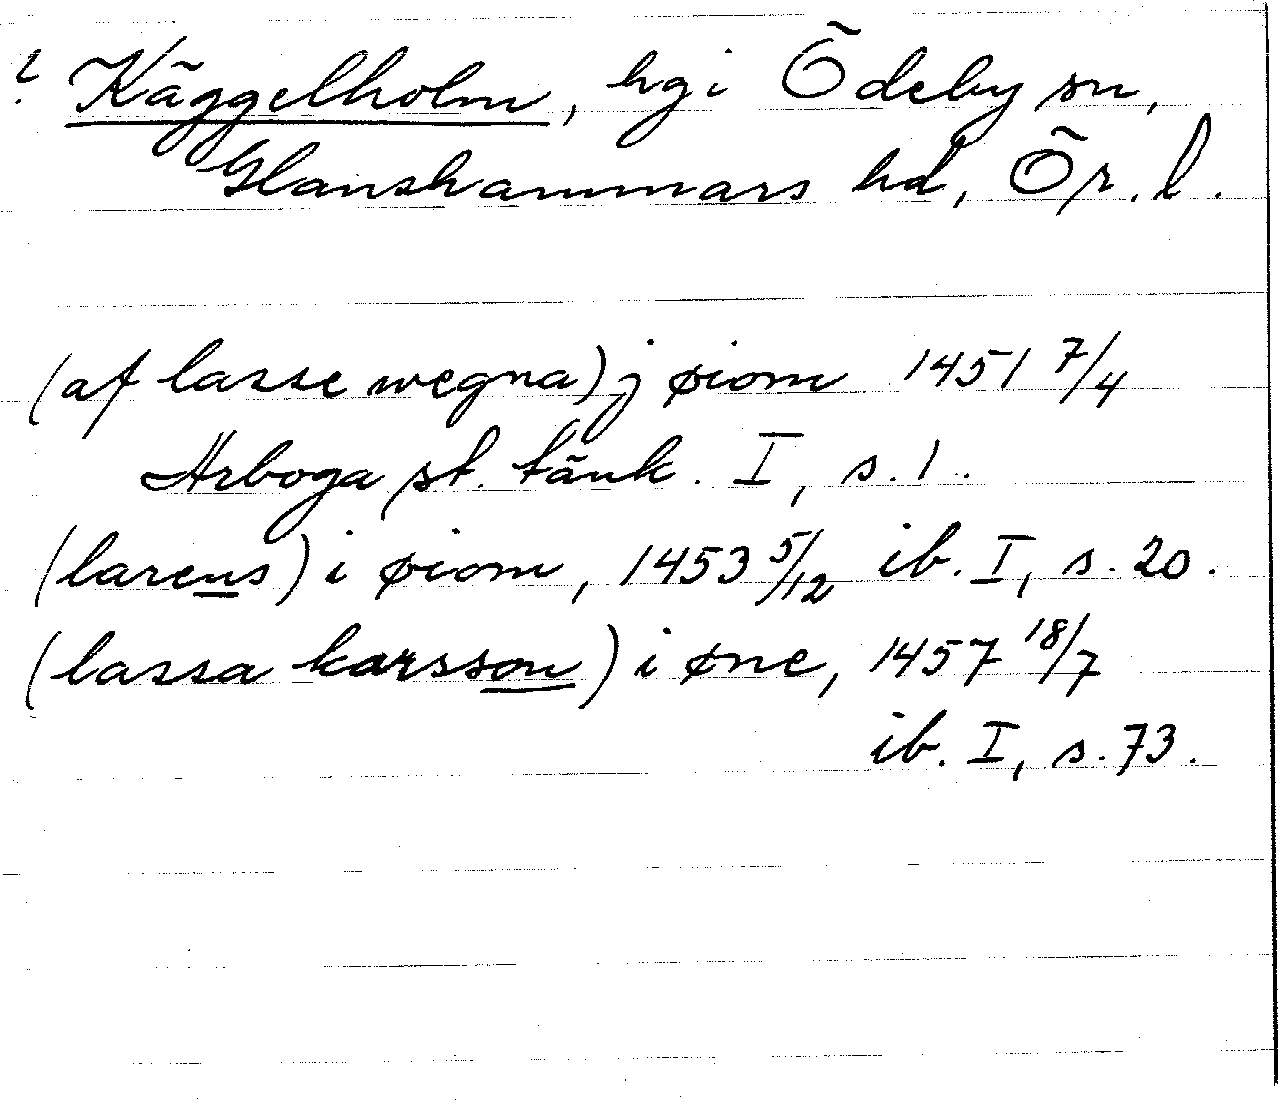 ? Käggelholm, hg i Ödeby sn,
Glanshammars hd, Ör. l.
(af lasse wegna) j øiom 1451 7/4
Arboga st. tänk. I, s. 1.
(larens) i øiom, 1453 5/12 ib. I, s. 20.
(lassa karsson) i øne, 1457 18/7
ib. I, s. 73.